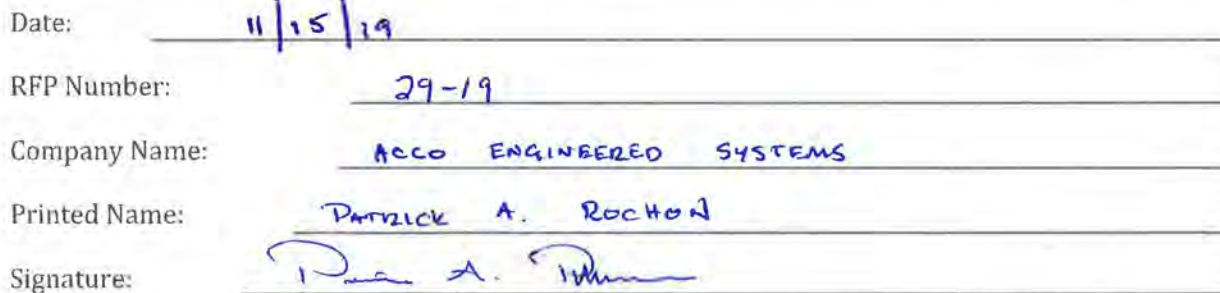 Date: 11/15/19
RFP Number: 29-19
Company Name: ACCO ENGINEERED SYSTEMS
Printed Name: PATRICK A. ROCHON
Signature: A.